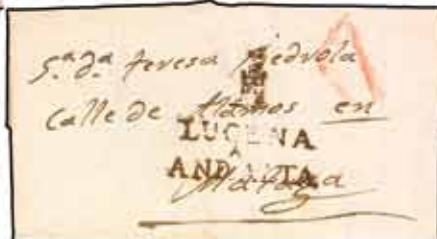 S.ª d.ª teresa Piedrola
Calle de Alamos en
LUCENA
ANDALUCIA
Malaga